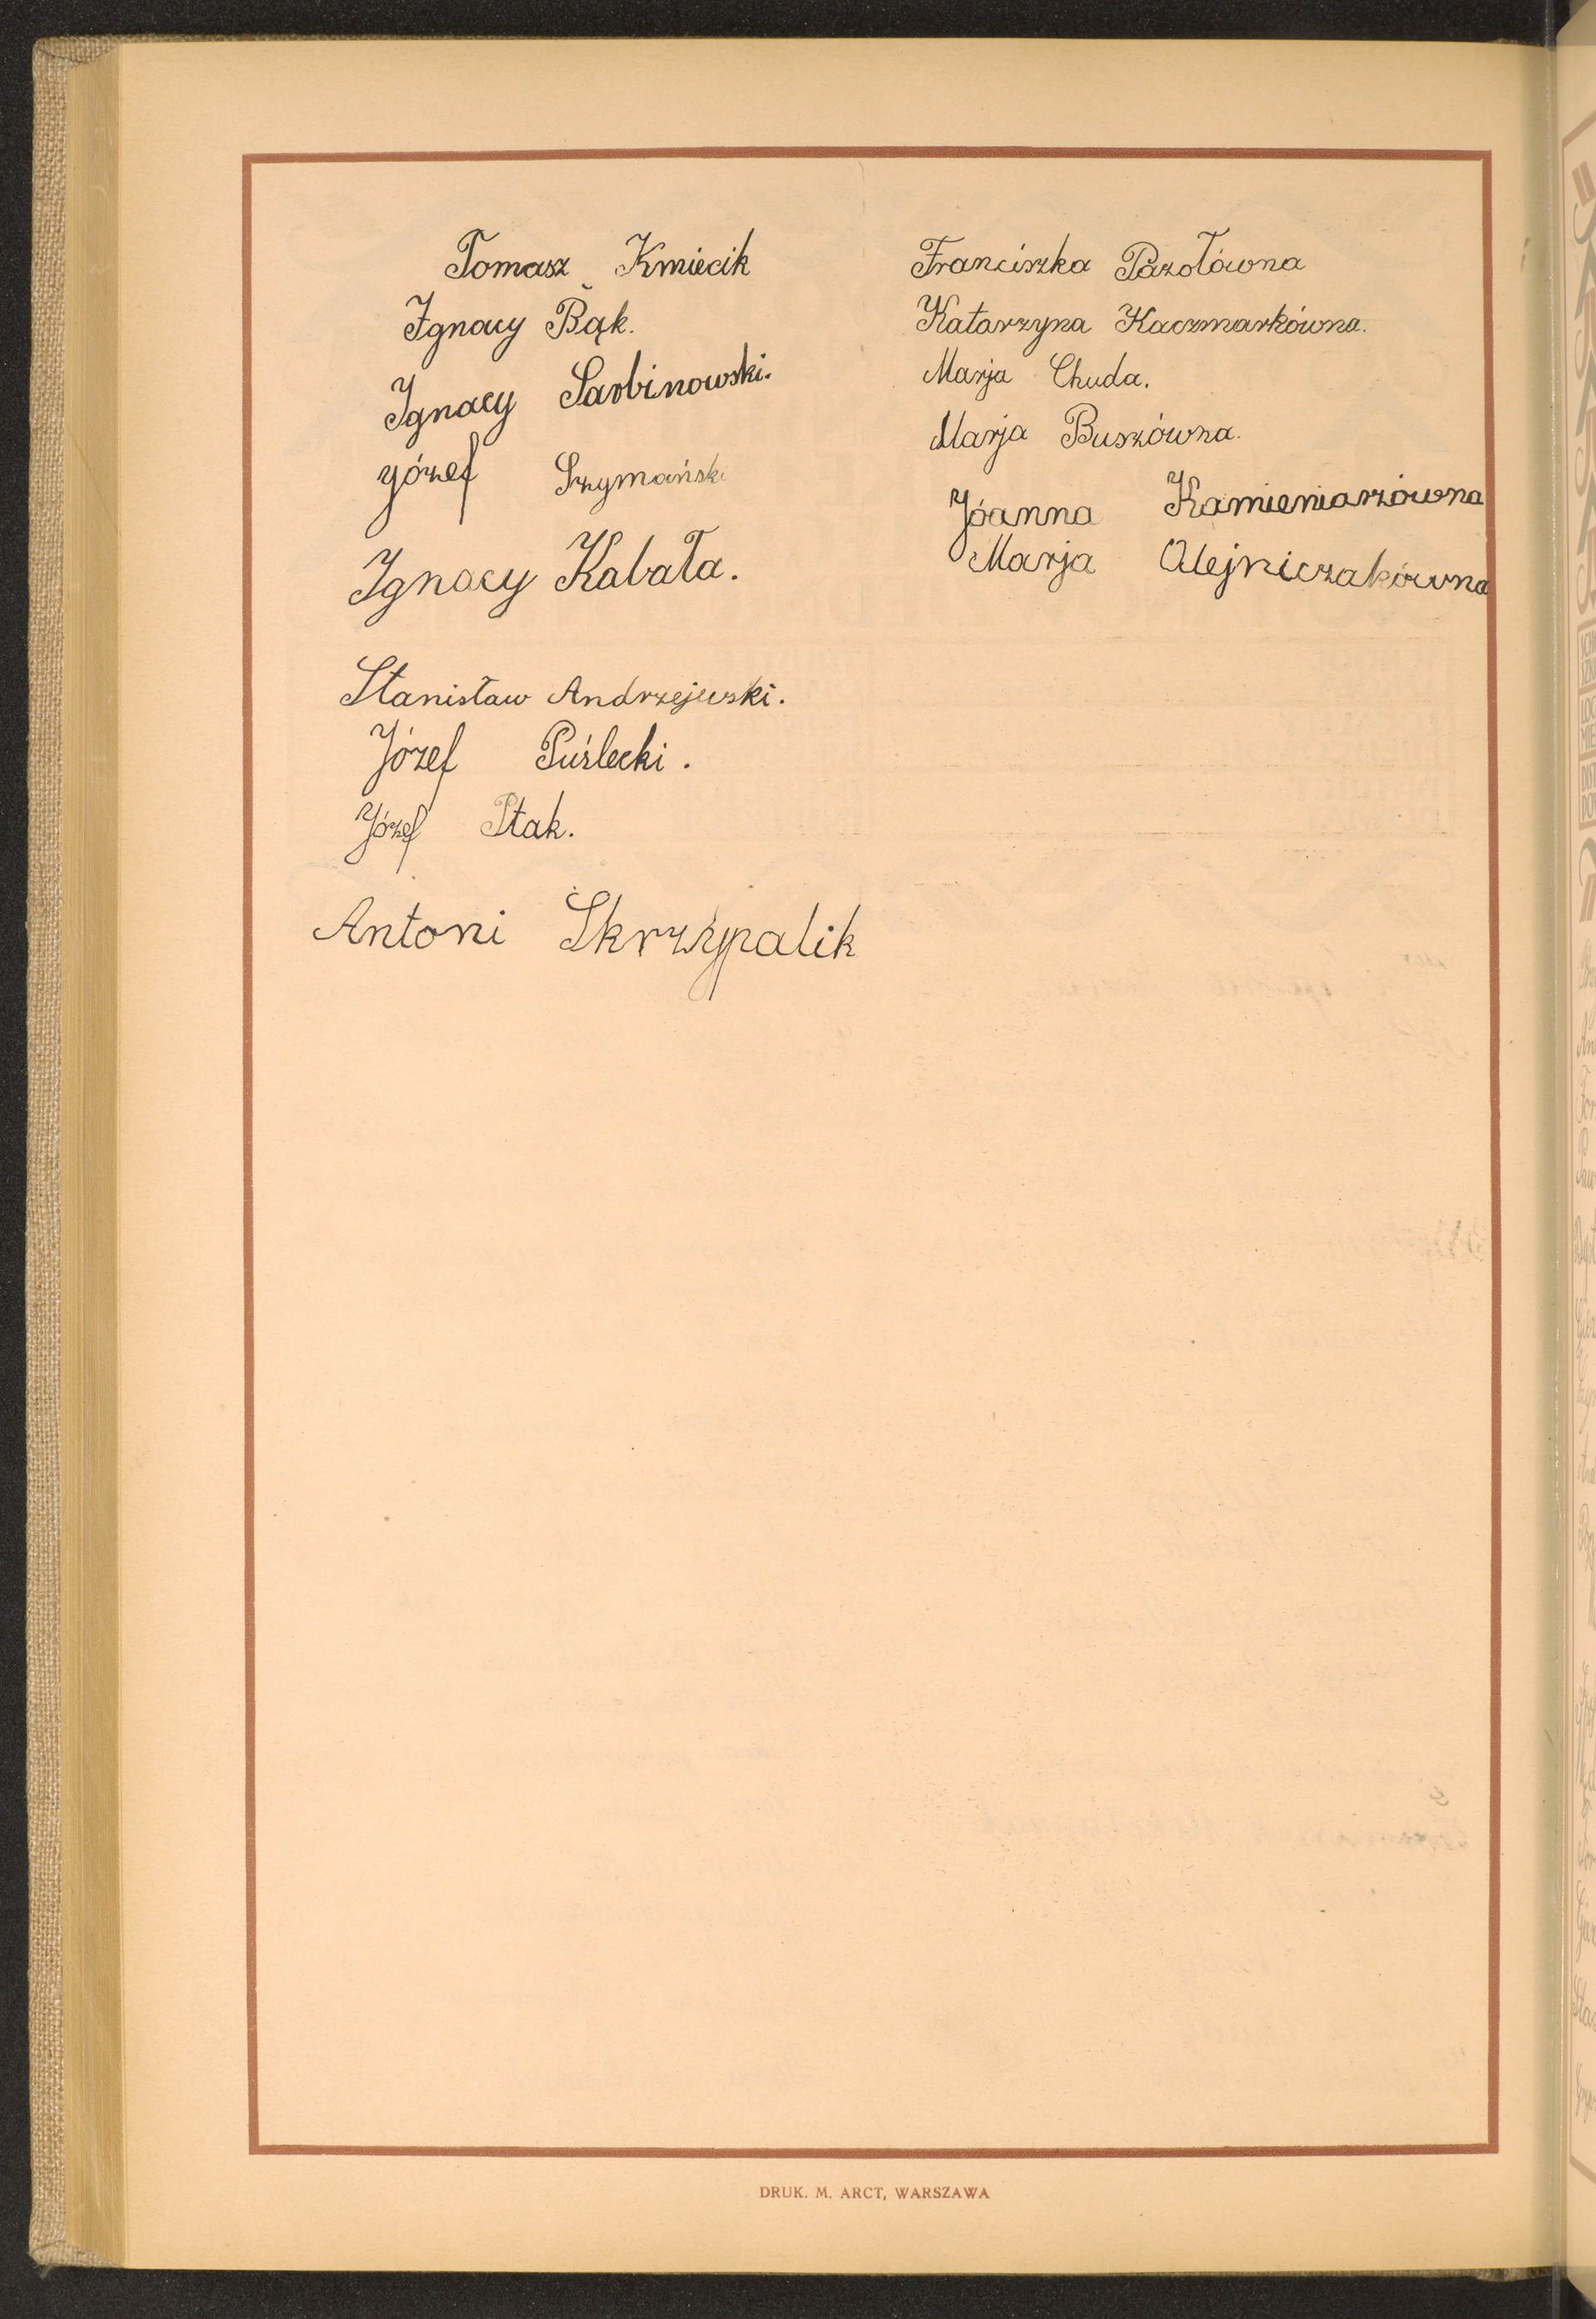 Tomasz Kmiecik
Ignacy Bąk.
Ignacy Sarbinowski.
Józef Szymański
Ignacy Kabała.
Stanisław Andrzejewski.
Józef Puślecki.
Józef Ptak.
Antoni Skrzypalik
Franciszka Pazołówna
Katarzyna Kaczmarkówna.
Marja Chuda.
Marja Buszówna.
Jóanna Kamieniarzówna
Marja Olejniczakówna
DRUK. M. ARCT, WARSZAWA